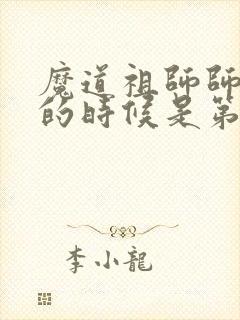 魔道祖師師
的時候是第
李小龍